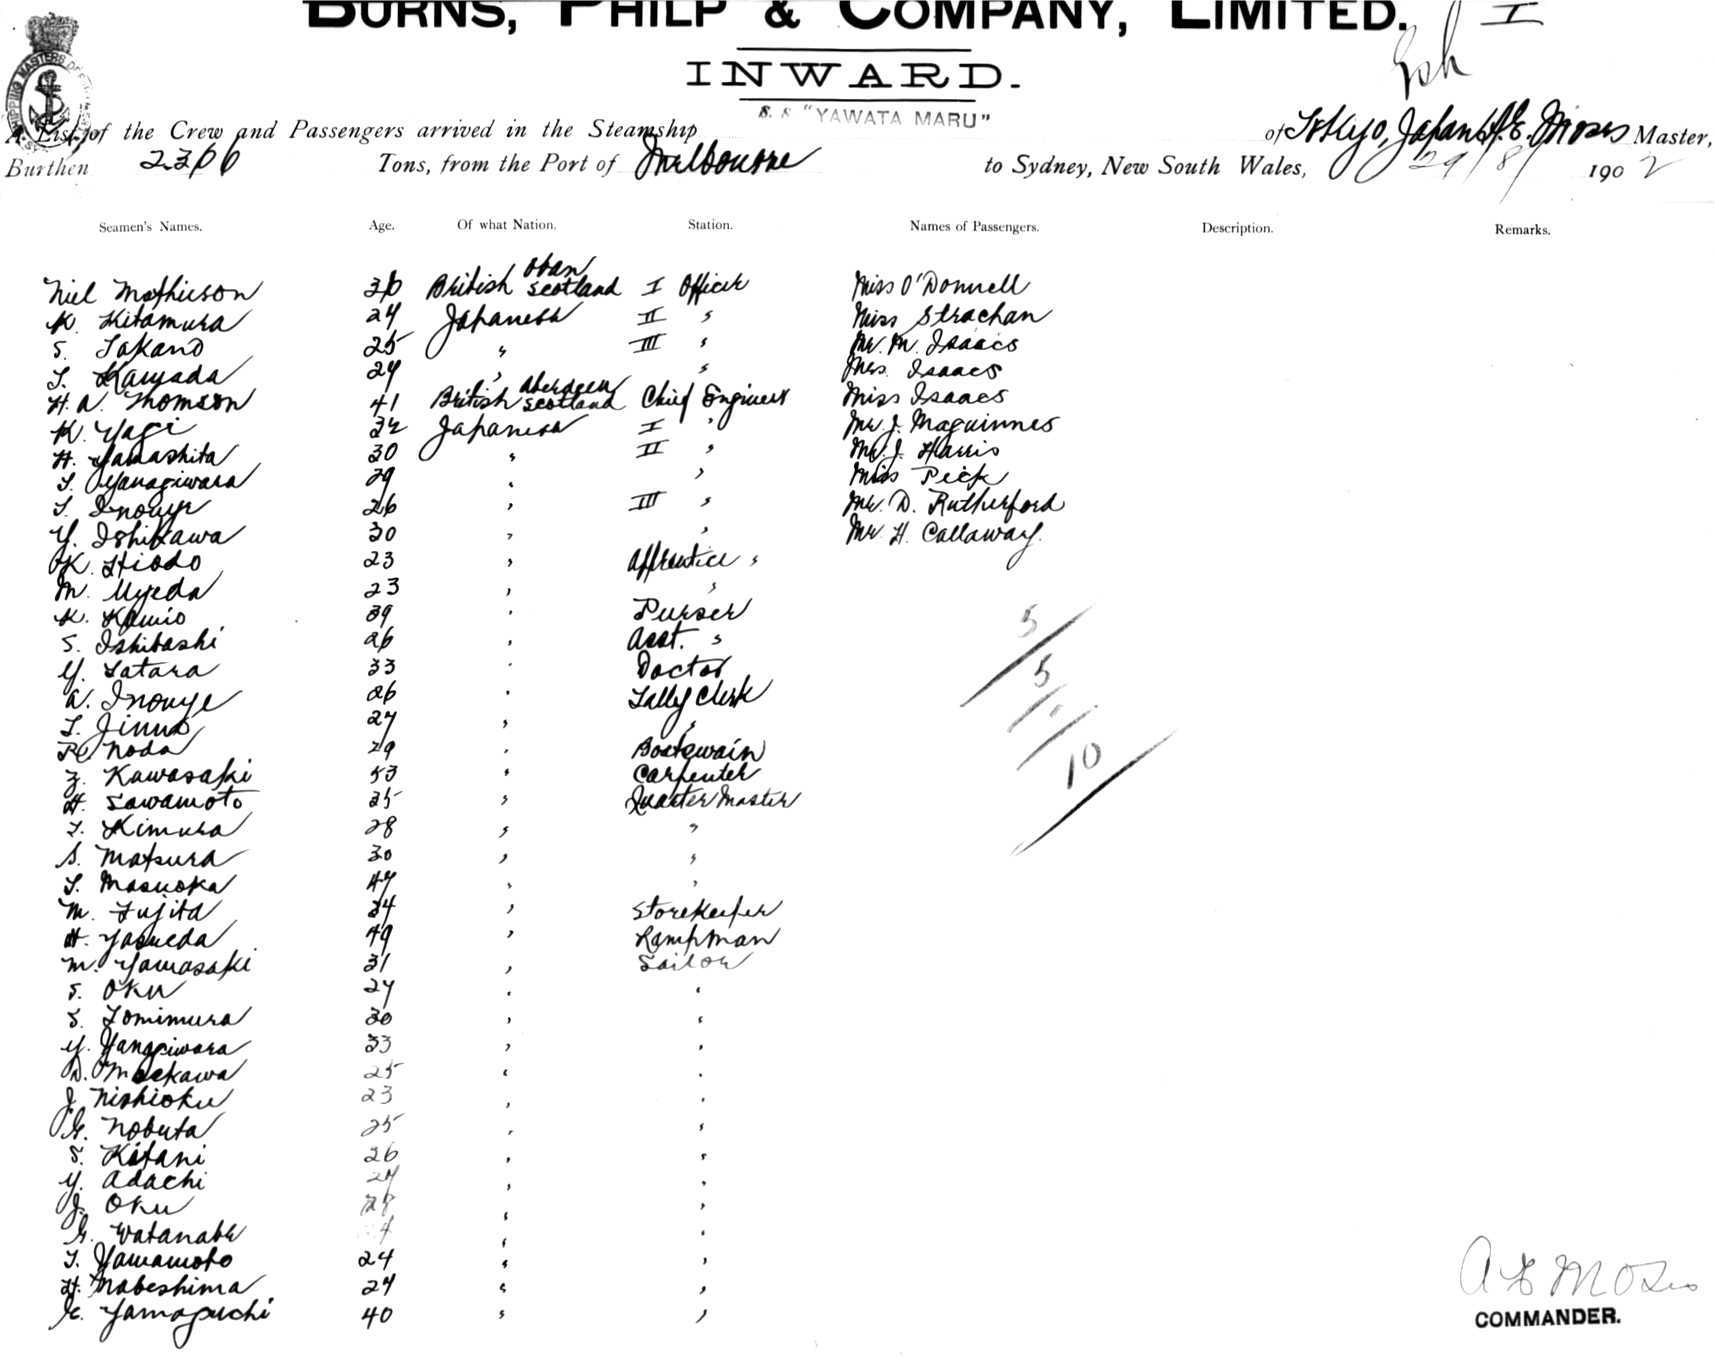 BURNS, PHILP & COMPANY, LIMITED. I
INWARD.
S.S "YAWATA MARU"
A List of the Crew and Passengers arrived in the Steamship of Tokyo, Japan A.E. Moses Master,
Burthen Tons, from the Port of Melbourne to Sydney, New South Wales, 29/8/ 1902
Seamen's Names. Age. Of what Nation. Station. Names of Passengers. Description. Remarks.
Niel Mathieson 36 British Oban Scotland I Officer Miss O'Donnell
K. Kitamura Japanese II " Miss Strachan
S. Takano 25 " III " Mr. M. Isaacs
T. " " Mrs. Isaacs
H. A. Thomson 41 British Aberdeen Scotland Chief Engineer Miss Isaacs
K. Yagi Japanese I " Mr. J. Maguinnes
H. Yamashita 30 " II " Mr. J. Harris
T. Yanagiwara 29 " " Miss Peck
T. Inouye 26 " III " Mr. D. Rutherford
Y. Ishikawa 30 " " Mr H. Callaway.
K. Hiodo 23 " Apprentice "
M. Uyeda 23 " "
K. Kamio 39 " Purser
S. Ishibashi 26 " Asst. "
Y. Tatara 33 " Doctor
A. Inouye 26 " Tally Clerk
T. Jinno 27 " "
Noda 29 " Boatswain
Z. Kawasaki 53 " Carpenter
H. Sawamoto 25 " Quarter Master
T. Kimura 28 " "
S. Matsura 30 " "
T. Masuoka 47 " "
M. Fujita 34 " Storekeeper
H. Yasueda 49 " Lampman
M. Yamasaki 31 " Sailor
S. Oku 27 " "
S. Tomimura 30 " "
Y. Yanagiwara 33 " "
D. Maekawa 25 " "
J. Nishioku 23 " "
G. Nobuta 25 " "
S. Kitani 26 " "
Y. Adachi " "
J. Oku 28 " "
G. Watanabe " "
T. Yamamoto 24 " "
H. Nabeshima 27 " "
G. Yamaguchi 40 " "
5
5
10
A E Moses
COMMANDER.